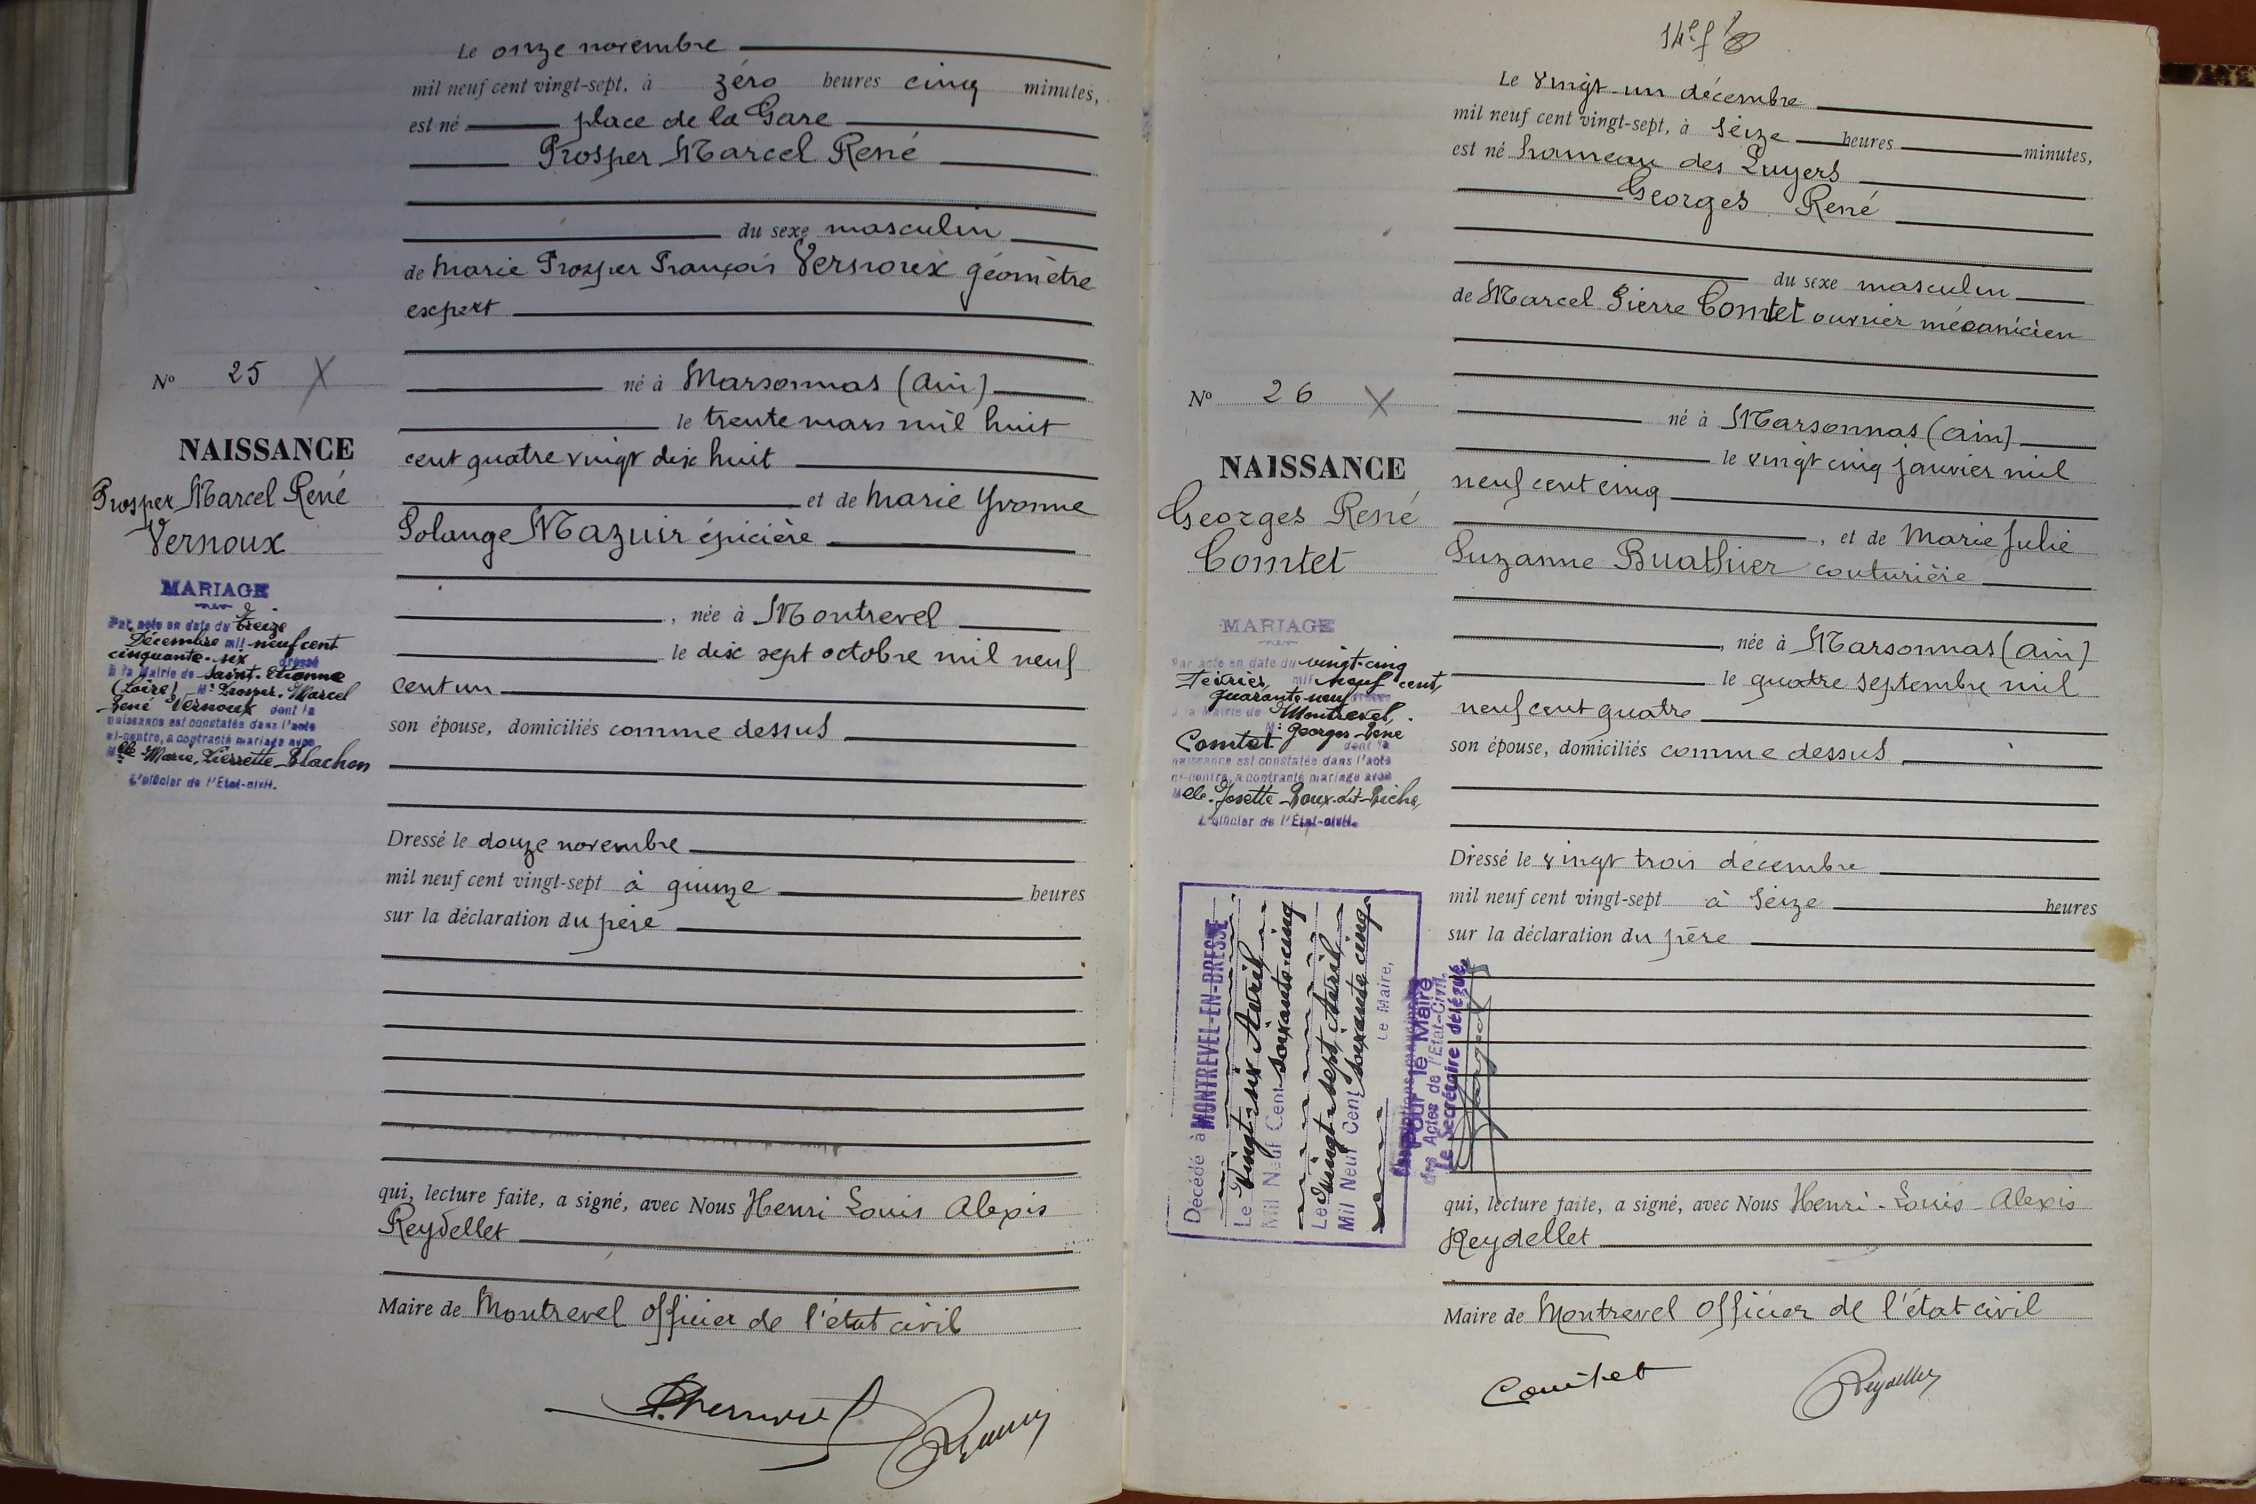 Le onze novembre
mil neuf cent vingt-sept, à zéro heures cinq minutes,
est né place de la Gare
Prosper Marcel René
du sexe masculin
de Marie Prosper François Vernoux géomètre
expert
né à Marsonnas (Ain)
le trente mars mil huit
cent quatre vingt dix huit
et de Marie Yvonne
Solange Mazuir épicière
, née à Montrevel
le dix sept octobre mil neuf
cent un
son épouse, domiciliés comme dessus
Dressé le douze novembre
mil neuf cent vingt-sept à quinze heures
sur la déclaration du père
qui, lecture faite, a signé, avec Nous Henri Louis Alexis
Reydellet
Maire de Montrevel officier de l'état civil
No 25 X
NAISSANCE
Prosper Marcel René
Vernoux
MARIAGE
Par acte en date du treize
Décembre mil neuf cent
cinquante-six dressé
à la Mairie de Saint-Etienne
(Loire) Mr Prosper, Marcel
René Vernoux dont la
naissance est constatée dans l'acte
ci-contre, a contracté mariage avec
Mlle Marie, Pierrette Plachon
L'officier de l'Etat-civil.
14e f
Le vingt-un décembre
mil neuf cent vingt-sept, à seize heures minutes,
est né hameau des Luyers
Georges René
du sexe masculin
de Marcel Pierre Comtet ouvrier mécanicien
né à Marsonnas (Ain)
le vingt cinq janvier mil
neuf cent cinq
, et de Marie Julie
Suzanne Buathier couturière
, née à Marsonnas (Ain)
le quatre septembre mil
neuf cent quatre
son épouse, domiciliés comme dessus
Dressé le vingt trois décembre
mil neuf cent vingt-sept à seize heures
sur la déclaration du père
qui, lecture faite, a signé, avec Nous Henri-Louis-Alexis
Reydellet
Maire de Montrevel officier de l'état civil
Comtet Reydellet
No 26 X
NAISSANCE
Georges René
Comtet
MARIAGE
Par acte en date du vingt-cinq
Février mil neuf cent
quarante-neuf dressé
à la Mairie de Montrevel
Mr Georges-René
Comtet dont la
naissance est constatée dans l'acte
ci-contre, a contracté mariage avec
Melle Josette Roux-dit-Riche
L'officier de l'Etat-civil.
Décédé à MONTREVEL-EN-BRESSE
Le Vingt-six Avril
Mil Neuf Cent soixante cinq
Le Vingt-sept Avril
Mil Neuf Cent soixante cinq
Le Maire,
Pour le Maire
des Actes de l'Etat-Civil.
Le Secrétaire délégué,